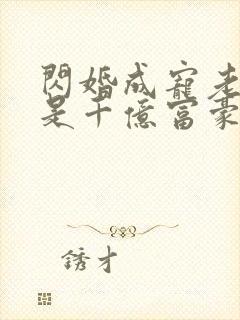 閃婚成寵老
是千億富豪
錢才